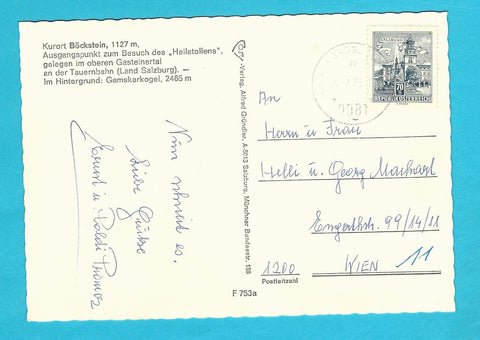 Kurort Böckstein, 1127 m,
Ausgangspunkt zum Besuch des „Heilstollens",
gelegen im oberen Gasteinertal
an der Tauernbahn (Land Salzburg). —
Im Hintergrund: Gamskarkogel, 2465 m
Nun schneit es.
Liebe Grüße
Ernst u. Poldi
Cosy-Verlag, Alfred Gründler, A-5013 Salzburg, Münchner Bundesstr. 156
SALZBURG
70
REPUBLIK ÖSTERREICH
An
Herrn u Frau
Helli u. Georg Machart
Engerthstr. 99/14/11
1200 WIEN 11
Postleitzahl
F 753a